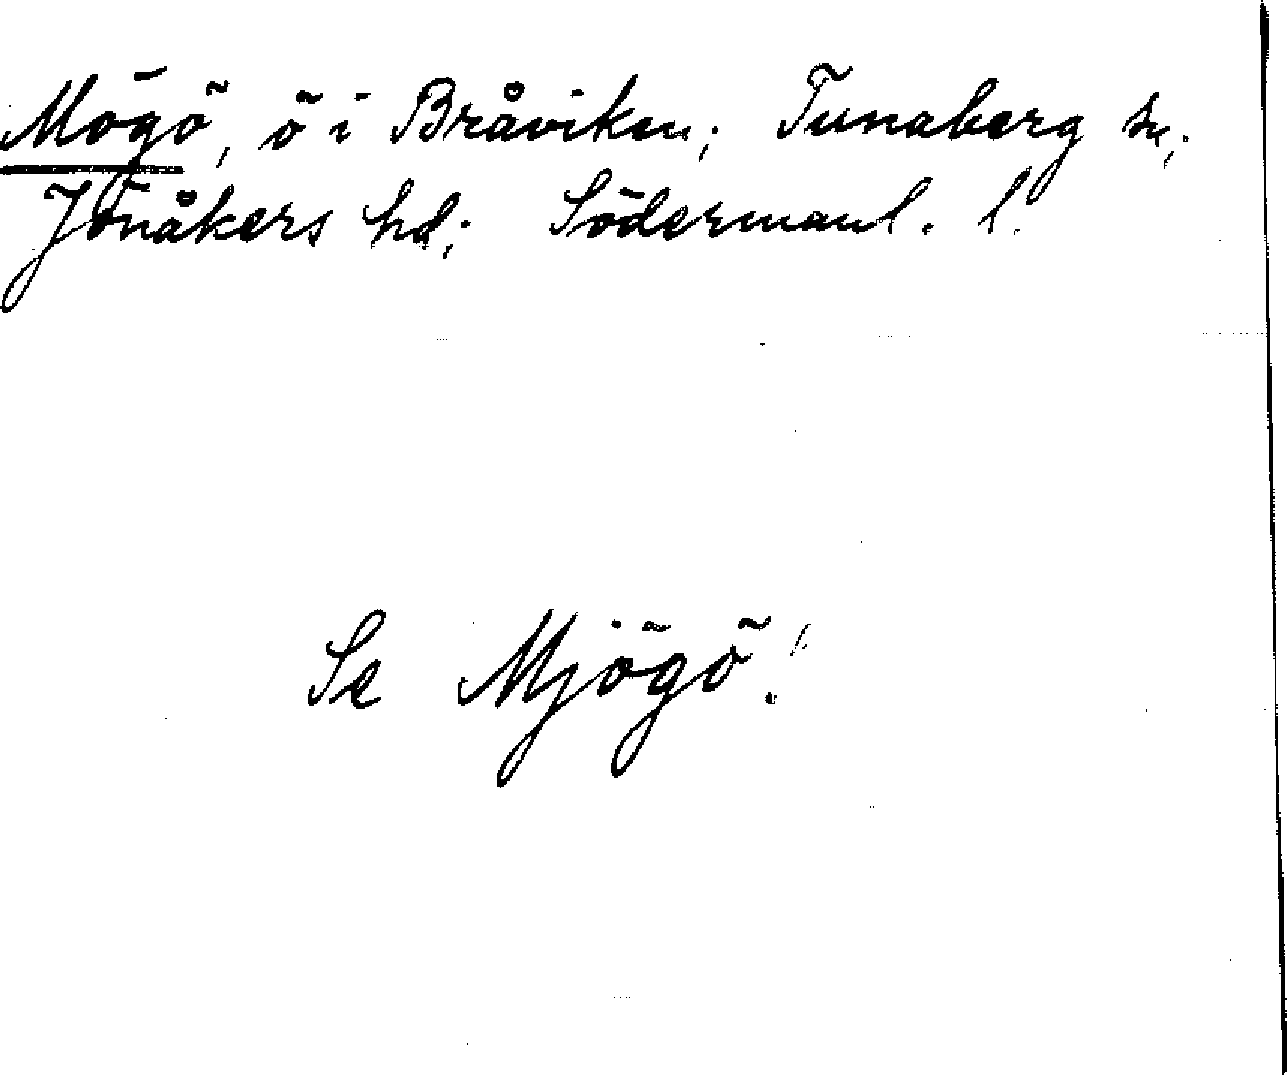 Mögö, ö i Bråviken; Tunaberg sn;
Jönåkers hd; Södermanl. l.
Se Mjögö!